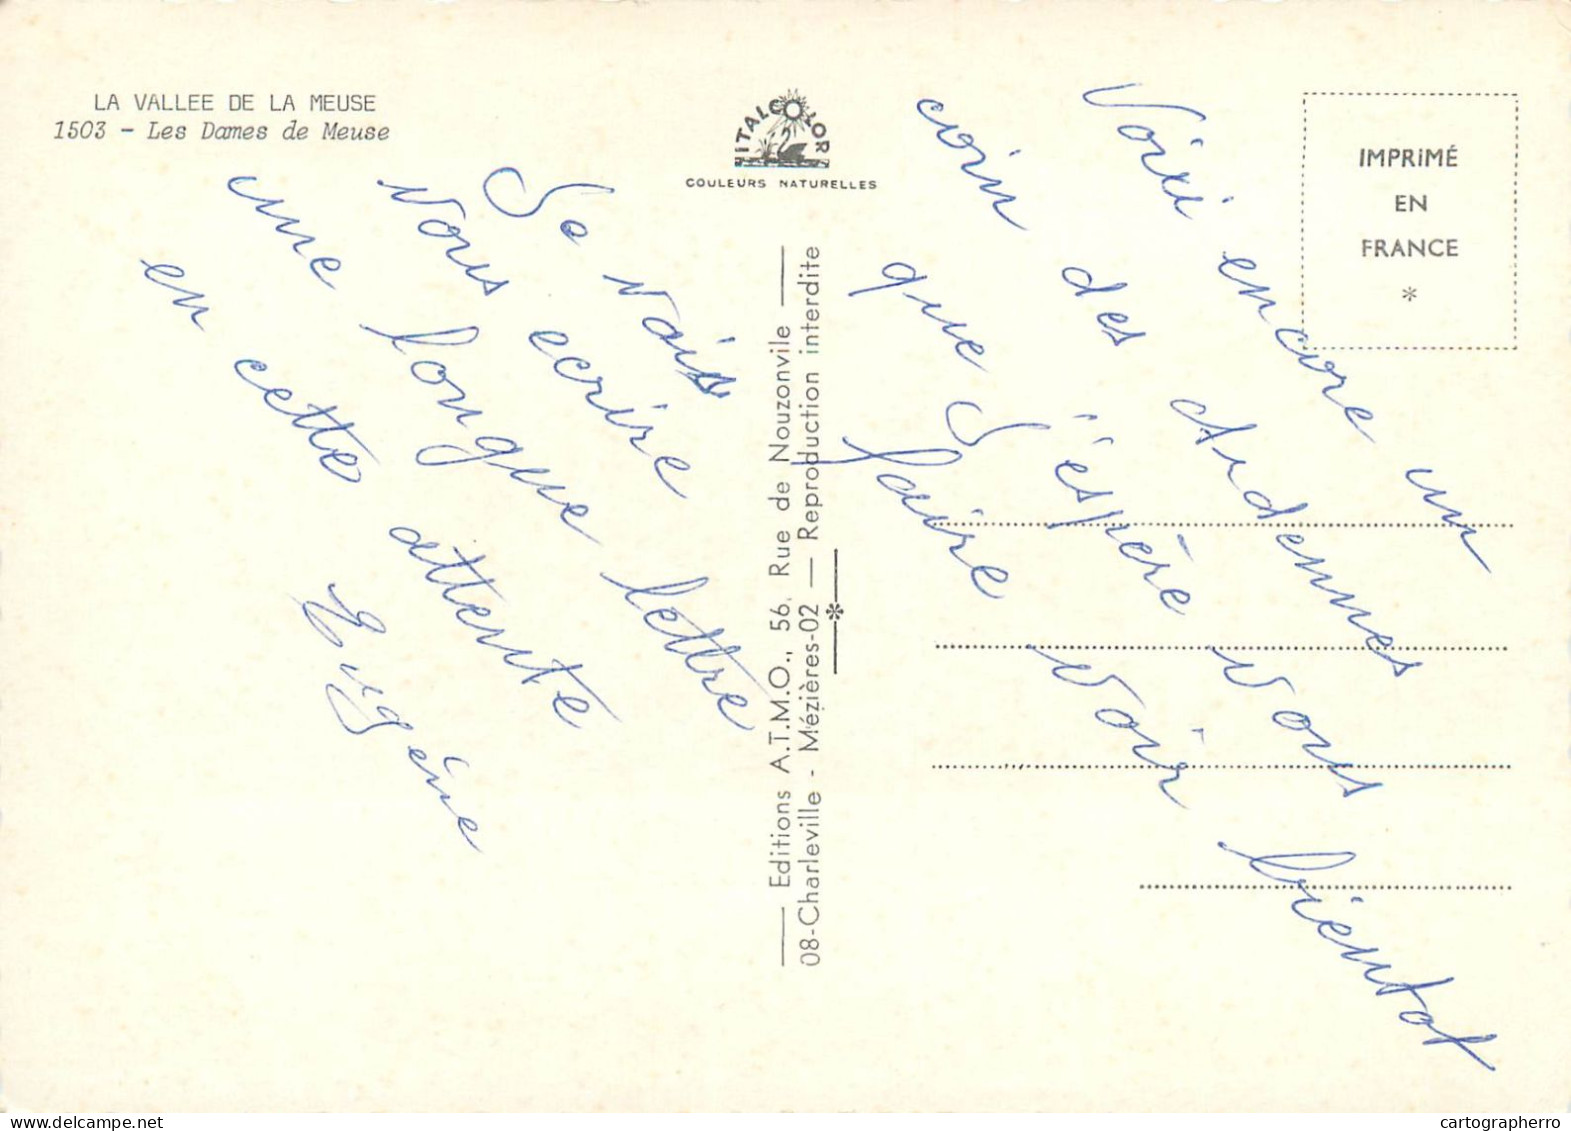 LA VALLEE DE LA MEUSE
1503 - Les Dames de Meuse
ITALCOLOR
COULEURS NATURELLES
IMPRIMÉ
EN
FRANCE
*
Voixi encore un
coin des Ardennes
que J'éspère vous
faire voir bientot
Je vais
vous ecrire
une longue lettre
en cette attente
Eugène
Editions A.T.M.O., 56, Rue de Nouzonvile
08-Charleville - Mézières-02 — Reproduction interdite
cartographerro